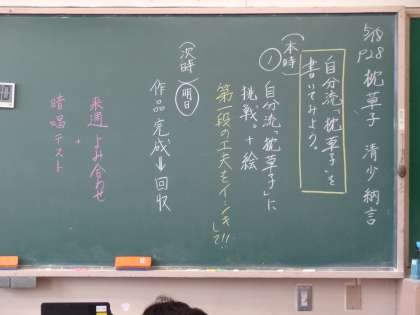 P28 枕草子 清少納言
自分流「枕草子」を
書いてみよう。
(本時)
① 自分流「枕草子」に
挑戦。+絵
第一段の工夫をイシキ
して!!
(次時)
明日
作品完成→回収
来週 よみ合わせ
+
暗唱テスト